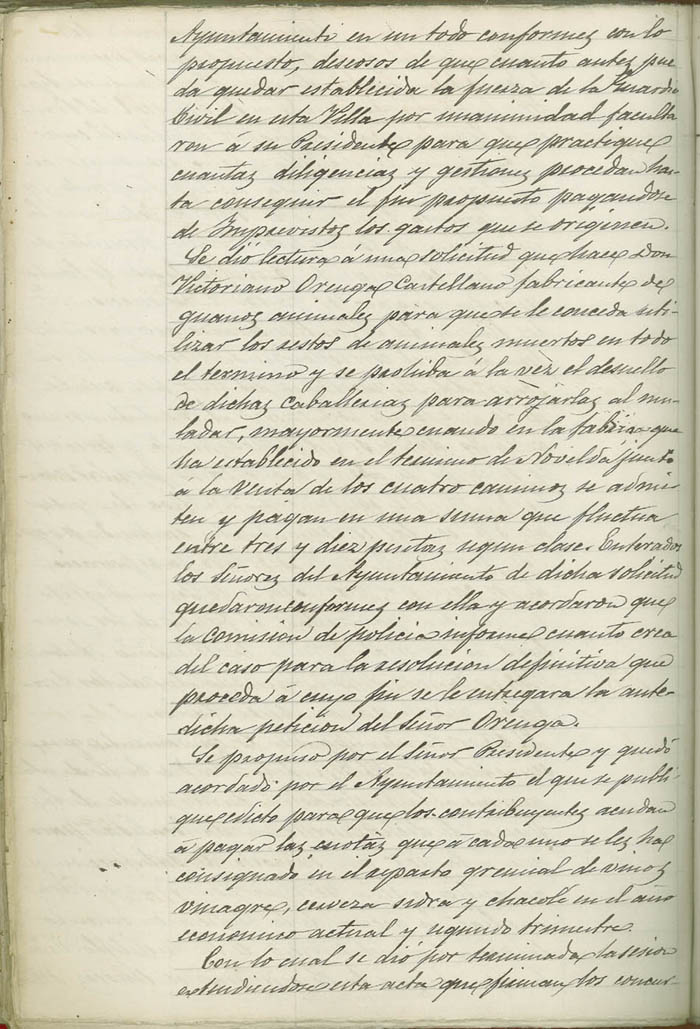 Ayuntamiento en un todo conformes con lo
propuesto, deseosos de que cuanto antes pue-
da quedar establecida la fuerza de la Guardia
Civil en esta Villa por unanimidad faculta
ron á su Presidente para que practique
cuantas diligencias y gestiones procedan has-
ta conseguir el fin propuesto pagandose
de Imprevistos los gastos que se originen.
Se dió lectura á una solicitud que hace Don
Victoriano Orenga Castellano fabricante de
guanos animales para que se le conceda uti-
lizar los restos de animales muertos en todo
el termino y se prohiba á la vez el desuello
de dichas caballerias para arrojarlas al mu-
ladar, mayormente cuando en la fabrica que
ha establecido en el termino de Novelda junto
á la Venta de los cuatro caminos se admi-
ten y pagan en una suma que fluctua
entre tres y diez pesetas segun clase. Enterados
los Señores del Ayuntamiento de dicha solicitud
quedaron conformes con ella y acordaron que
la Comision de policia informe cuanto crea
del caso para la resolucion definitiva que
proceda á cuyo fin se le entregara la ante-
dicha peticion del Señor Orenga.
Se propuso por el Señor Presidente y quedó
acordado por el Ayuntamiento el que se publi-
que edicto para que los contribuyentes acudan
á pagar las cuotas que á cada uno se les ha
consignado en el reparto gremial de vinos
vinagre, cerveza sidra y chacolí en el año
economico actual y segundo trimestre.
Con lo cual se dió por terminada la sesion
extendiendose esta acta que firman los concur-